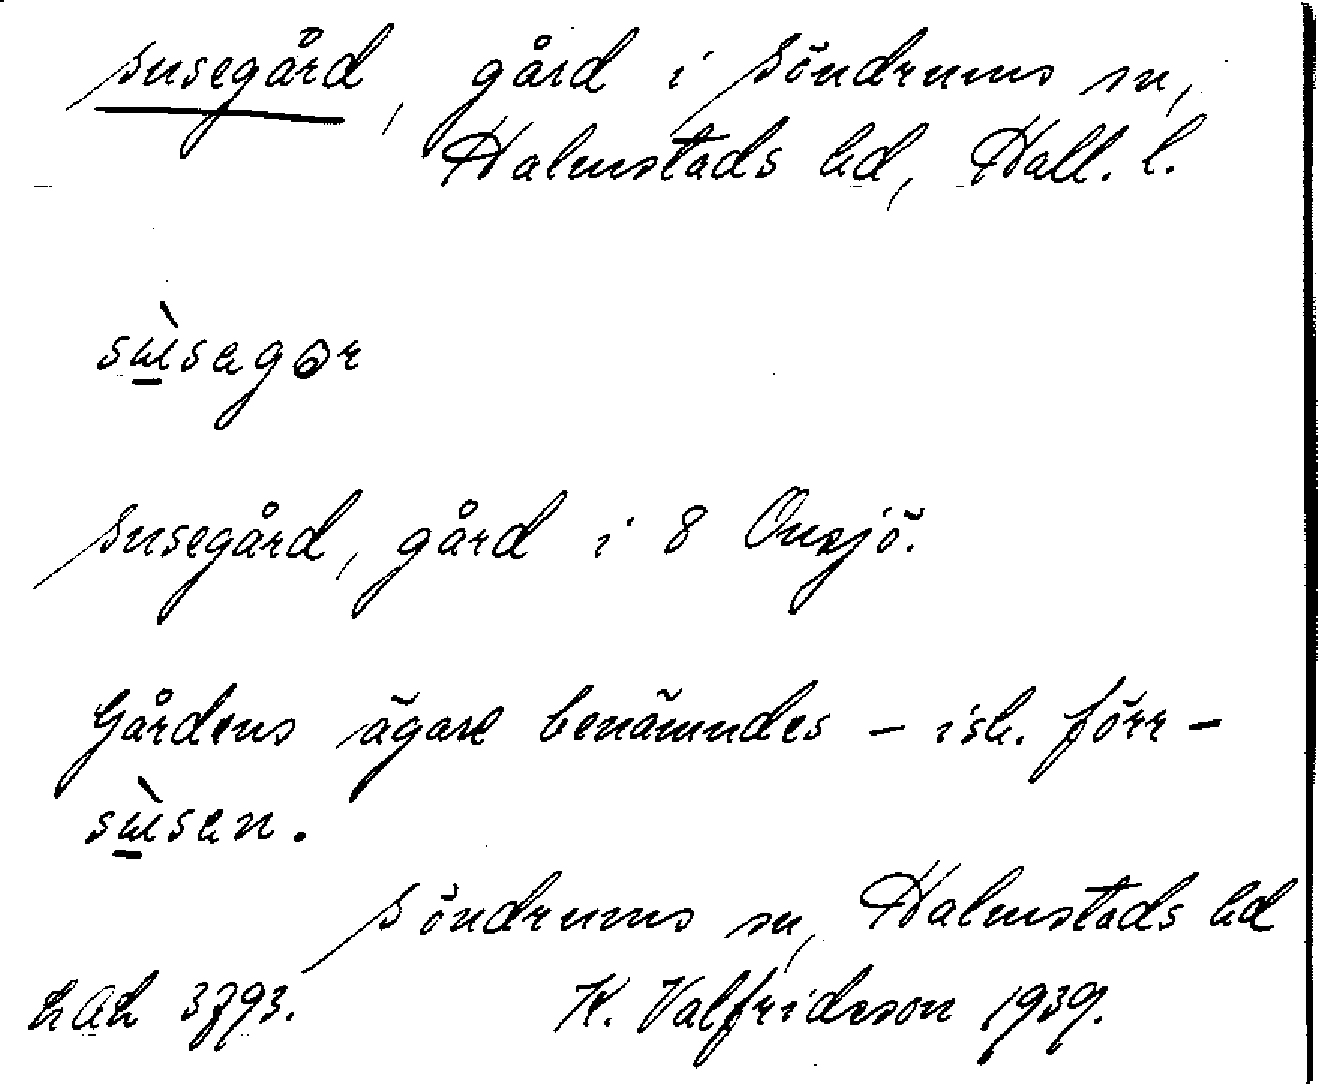 Susegård, gård i Söndrums sn,
Halmstads hd, Hall. l.
sù̲sagɵr
Susegård, gård i 8 Onsjö.
Gårdens ägare benämndes – ish. förr –
sù̲san.
Söndrums sn, Halmstads hd
LAL 3793. K. Valfridsson 1939.